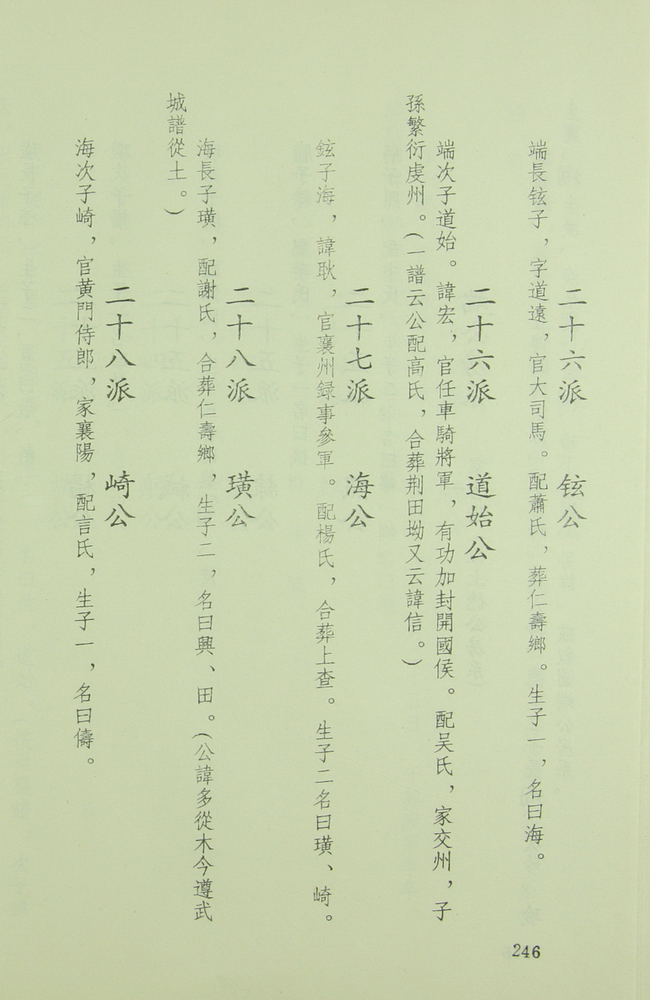 二十六派 铉公
端長铉子，字道遠，官大司馬。配蕭氏，葬仁壽鄉。生子一，名曰海。
二十六派 道始公
端次子道始。諱宏，官任車騎將軍，有功加封開國侯。配吴氏，家交州，子
孫繁衍虔州。（一譜云公配高氏，合葬荆田坳又云諱信。）
二十七派 海公
鉉子海，諱耿，官襄州録事參軍。配楊氏，合葬上查。生子二名曰璜、崎。
二十八派 璜公
海長子璜，配謝氏，合葬仁壽鄉，生子二，名曰興、田。（公諱多從木今遵武
城譜從土。）
二十八派 崎公
海次子崎，官黄門侍郎，家襄陽，配言氏，生子一，名曰儔。
246